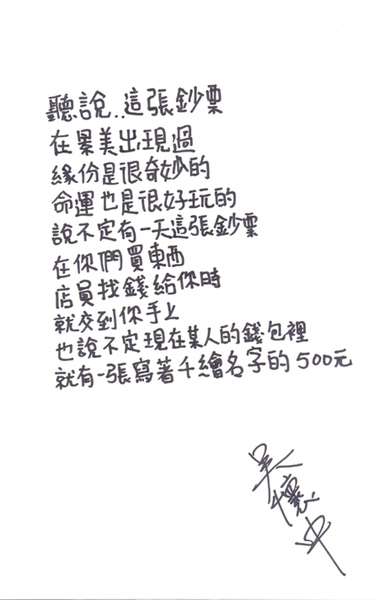 聽說..這張鈔票
在景美出現過
緣份是很奇妙的
命運也是很好玩的
說不定有一天這張鈔票
在你們買東西
店員找錢給你時
就交到你手上
也說不定現在某人的錢包裡
就有一張寫著千繪名字的500元
吳懷中